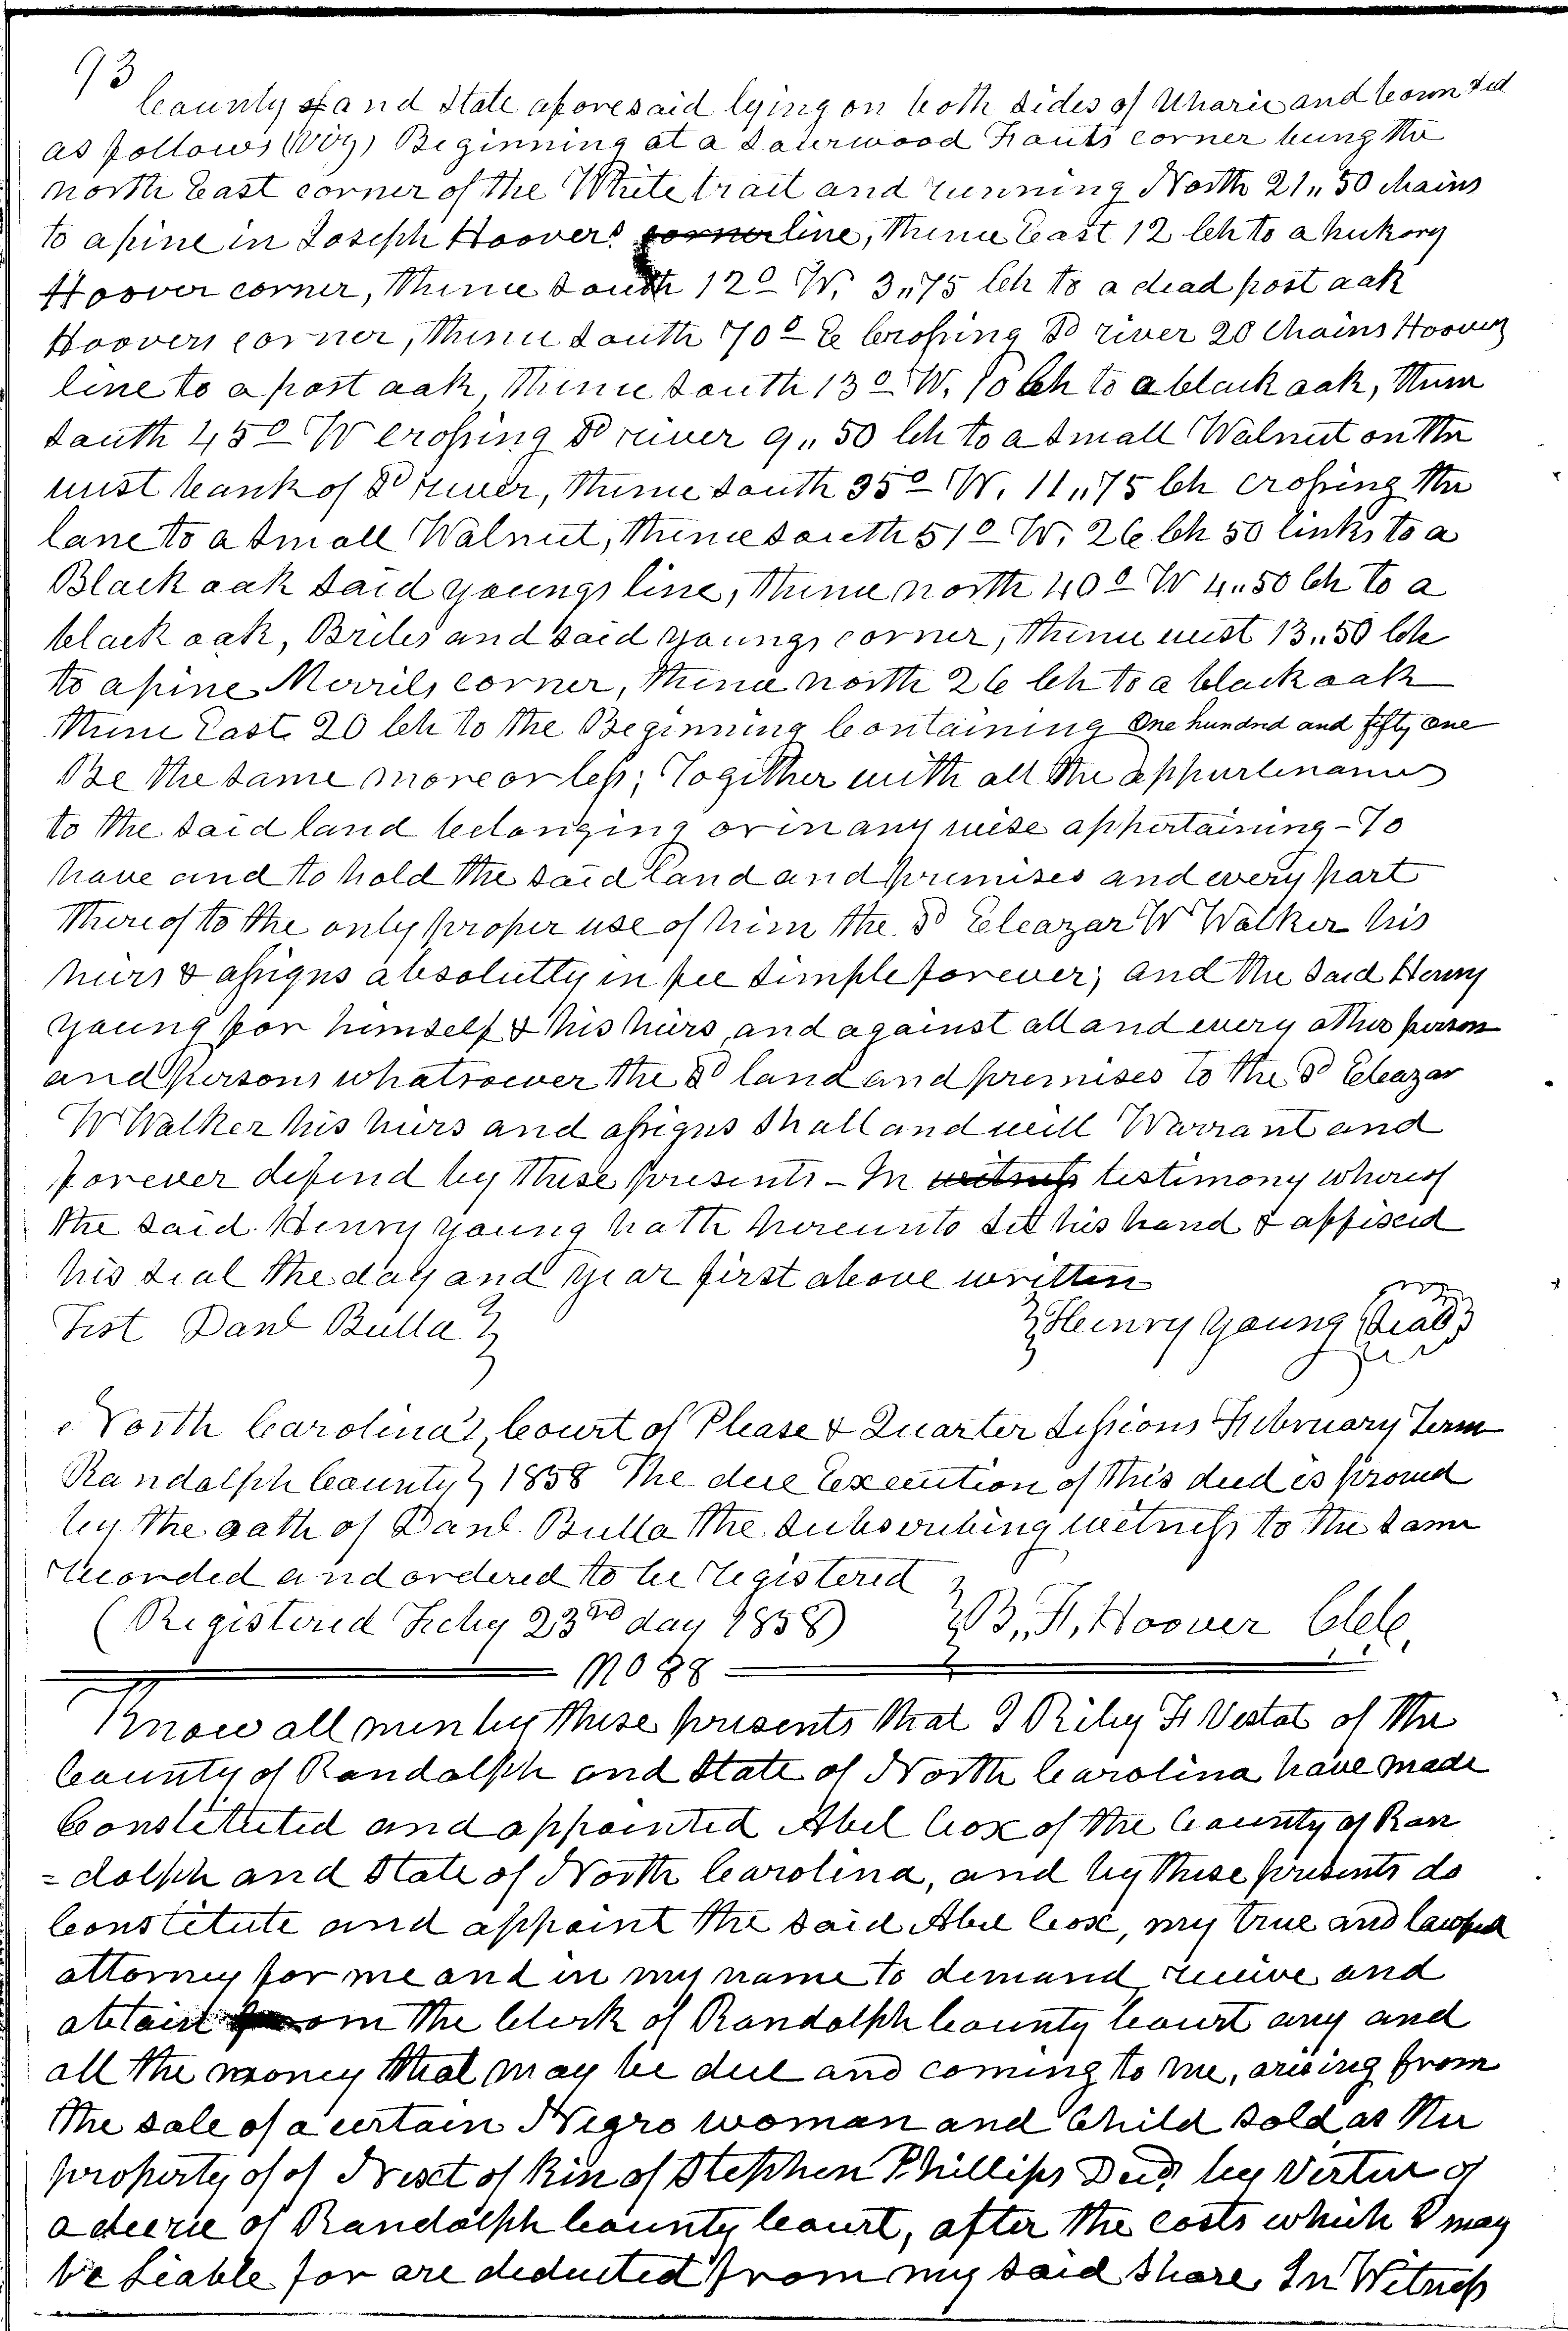 93
County of and State aforesaid lying on both sides of Uharie and bounded
as follows (Viz) Beginning at a Sourwood Fouts corner being the
north East corner of the White tract and running North 21,, 50 chains
to a pine in Joseph Hoovers corner line, Thence East 12 Ch to a hickory
Hoover corner, Thence South 12° W. 3,,75 Ch to a dead post oak
Hoovers corner, Thence South 70° E Crossing Sd river 20 Chains Hoovers
line to a post oak, Thence South 13° W. 10 Ch to a black oak, Thence
South 45° W crossing Sd river 9,, 50 Ch to a Small Walnut on the
west bank of Sd river, Thence South 35° W. 11,,75 Ch crossing the
lane to a Small Walnut, Thence South 51° W. 26 Ch 50 links to a
Black oak Said youngs line, Thence north 40° W 4,,50 Ch to a
black oak, Briles and Said youngs corner, Thence west 13,,50 Ch
to a pine Morrils corner, Thence north 26 Ch to a black oak
Thence East 20 Ch to the Beginning Containing One hundred and fifty one
Be the Same more or less; Together with all the appurtenances
to the Said land belonging or in any wise appertaining - To
have and to hold the Said Land and premises and every part
thereof to the only proper use of him the Sd Eleazar W Walker his
heirs & assigns absolutely in fee Simple forever; and the Said Henry
Young for himself & his heirs, and against all and every other person
and Persons whatsoever the Sd land and premises to the Sd Eleazar
W Walker his heirs and assigns Shall and will Warrant and
forever defend by these presents - In witness testimony whereof
the Said Henry young hath hereunto Set his hand & affixed
his Seal the day and year first above written
Test Danl Bulla } {Henry Young (Seal)
North Carolina } Court of Please & Quarter Sessions February Term
Randolph County } 1858 The due Execution of this deed is proved
by the oath of Danl. Bulla the Subscribing witness to the Same
Recorded and ordered to be Registered
(Registered Feby 23rd day 1858) } B. F. Hoover Clk.
No 88
Know all men by these presents that I Riley F Vestal of the
County of Randolph and State of North Carolina have made
Constituted and appointed Abel Cox of the County of Ran
= dolph and State of North Carolina, and by these presents do
Constitute and appoint the Said Abel Cox, my true and lawful
attorney for me and in my name to demand receive and
obtain from the Clerk of Randolph County Court any and
all the money that may be due and coming to me, arising from
the sale of a certain Negro woman and Child sold as the
property of of Next of Kin of Stephen Phillips Decd by Virtue of
a decree of Randolph County Court, after the costs which I may
be Liable for are deducted from my Said Share, In Witness